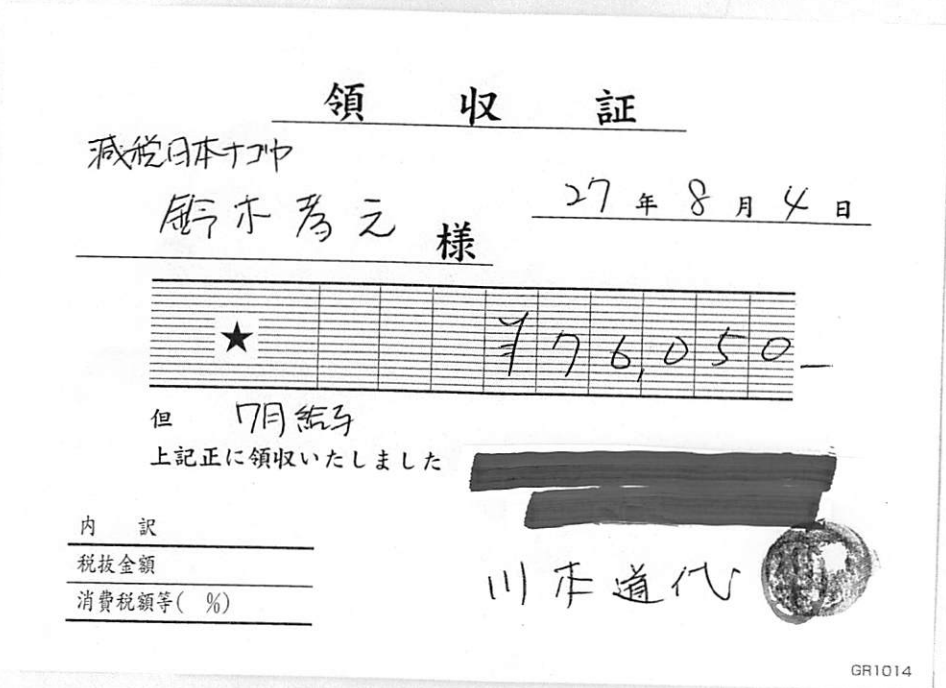 領 収 証
減税日本ナゴヤ
鈴木孝之 様
27年8月4日
★ ¥76,050-
但 7月給与
上記正に領収いたしました
内 訳
税抜金額
消費税額等( %)
川本道代
GR1014